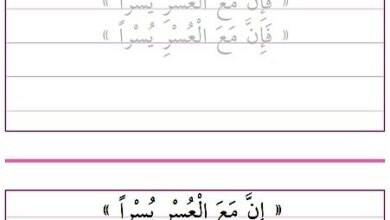 « فَإِنَّ مَعَ الْعُسْرِ يُسْراً »
« فَإِنَّ مَعَ الْعُسْرِ يُسْراً »
« إِنَّ مَعَ الْعُسْرِ يُسْراً »